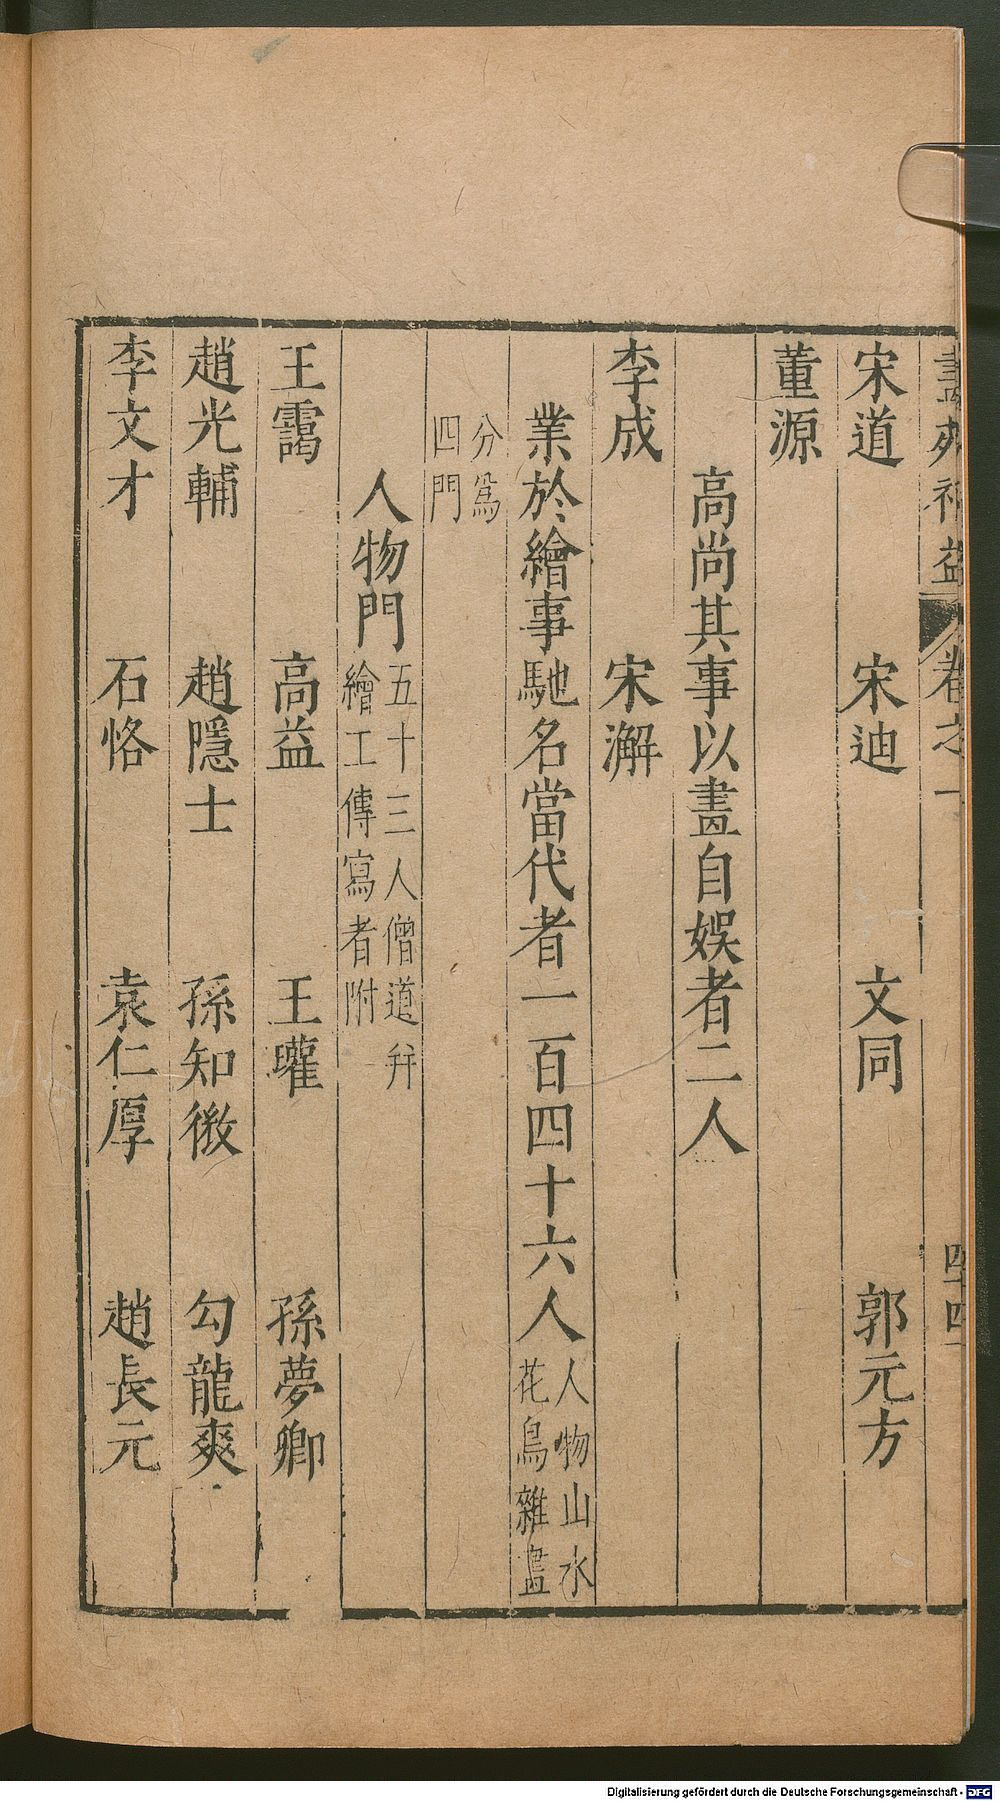 畫苑補益 卷之一 四四
宋道 宋迪 文同 郭元方
董源
高尚其事以畫自娛者二人
李成 宋澥
業於繪事馳名當代者一百四十六人 人物山水
花鳥雜畫
分爲
四門
人物門 五十三人僧道幷
繪工傳寫者附
王靄 高益 王瓘 孫夢卿
趙光輔 趙隱士 孫知微 勾龍爽
李文才 石恪 袁仁厚 趙長元
Digitalisierung gefördert durch die Deutsche Forschungsgemeinschaft - DFG